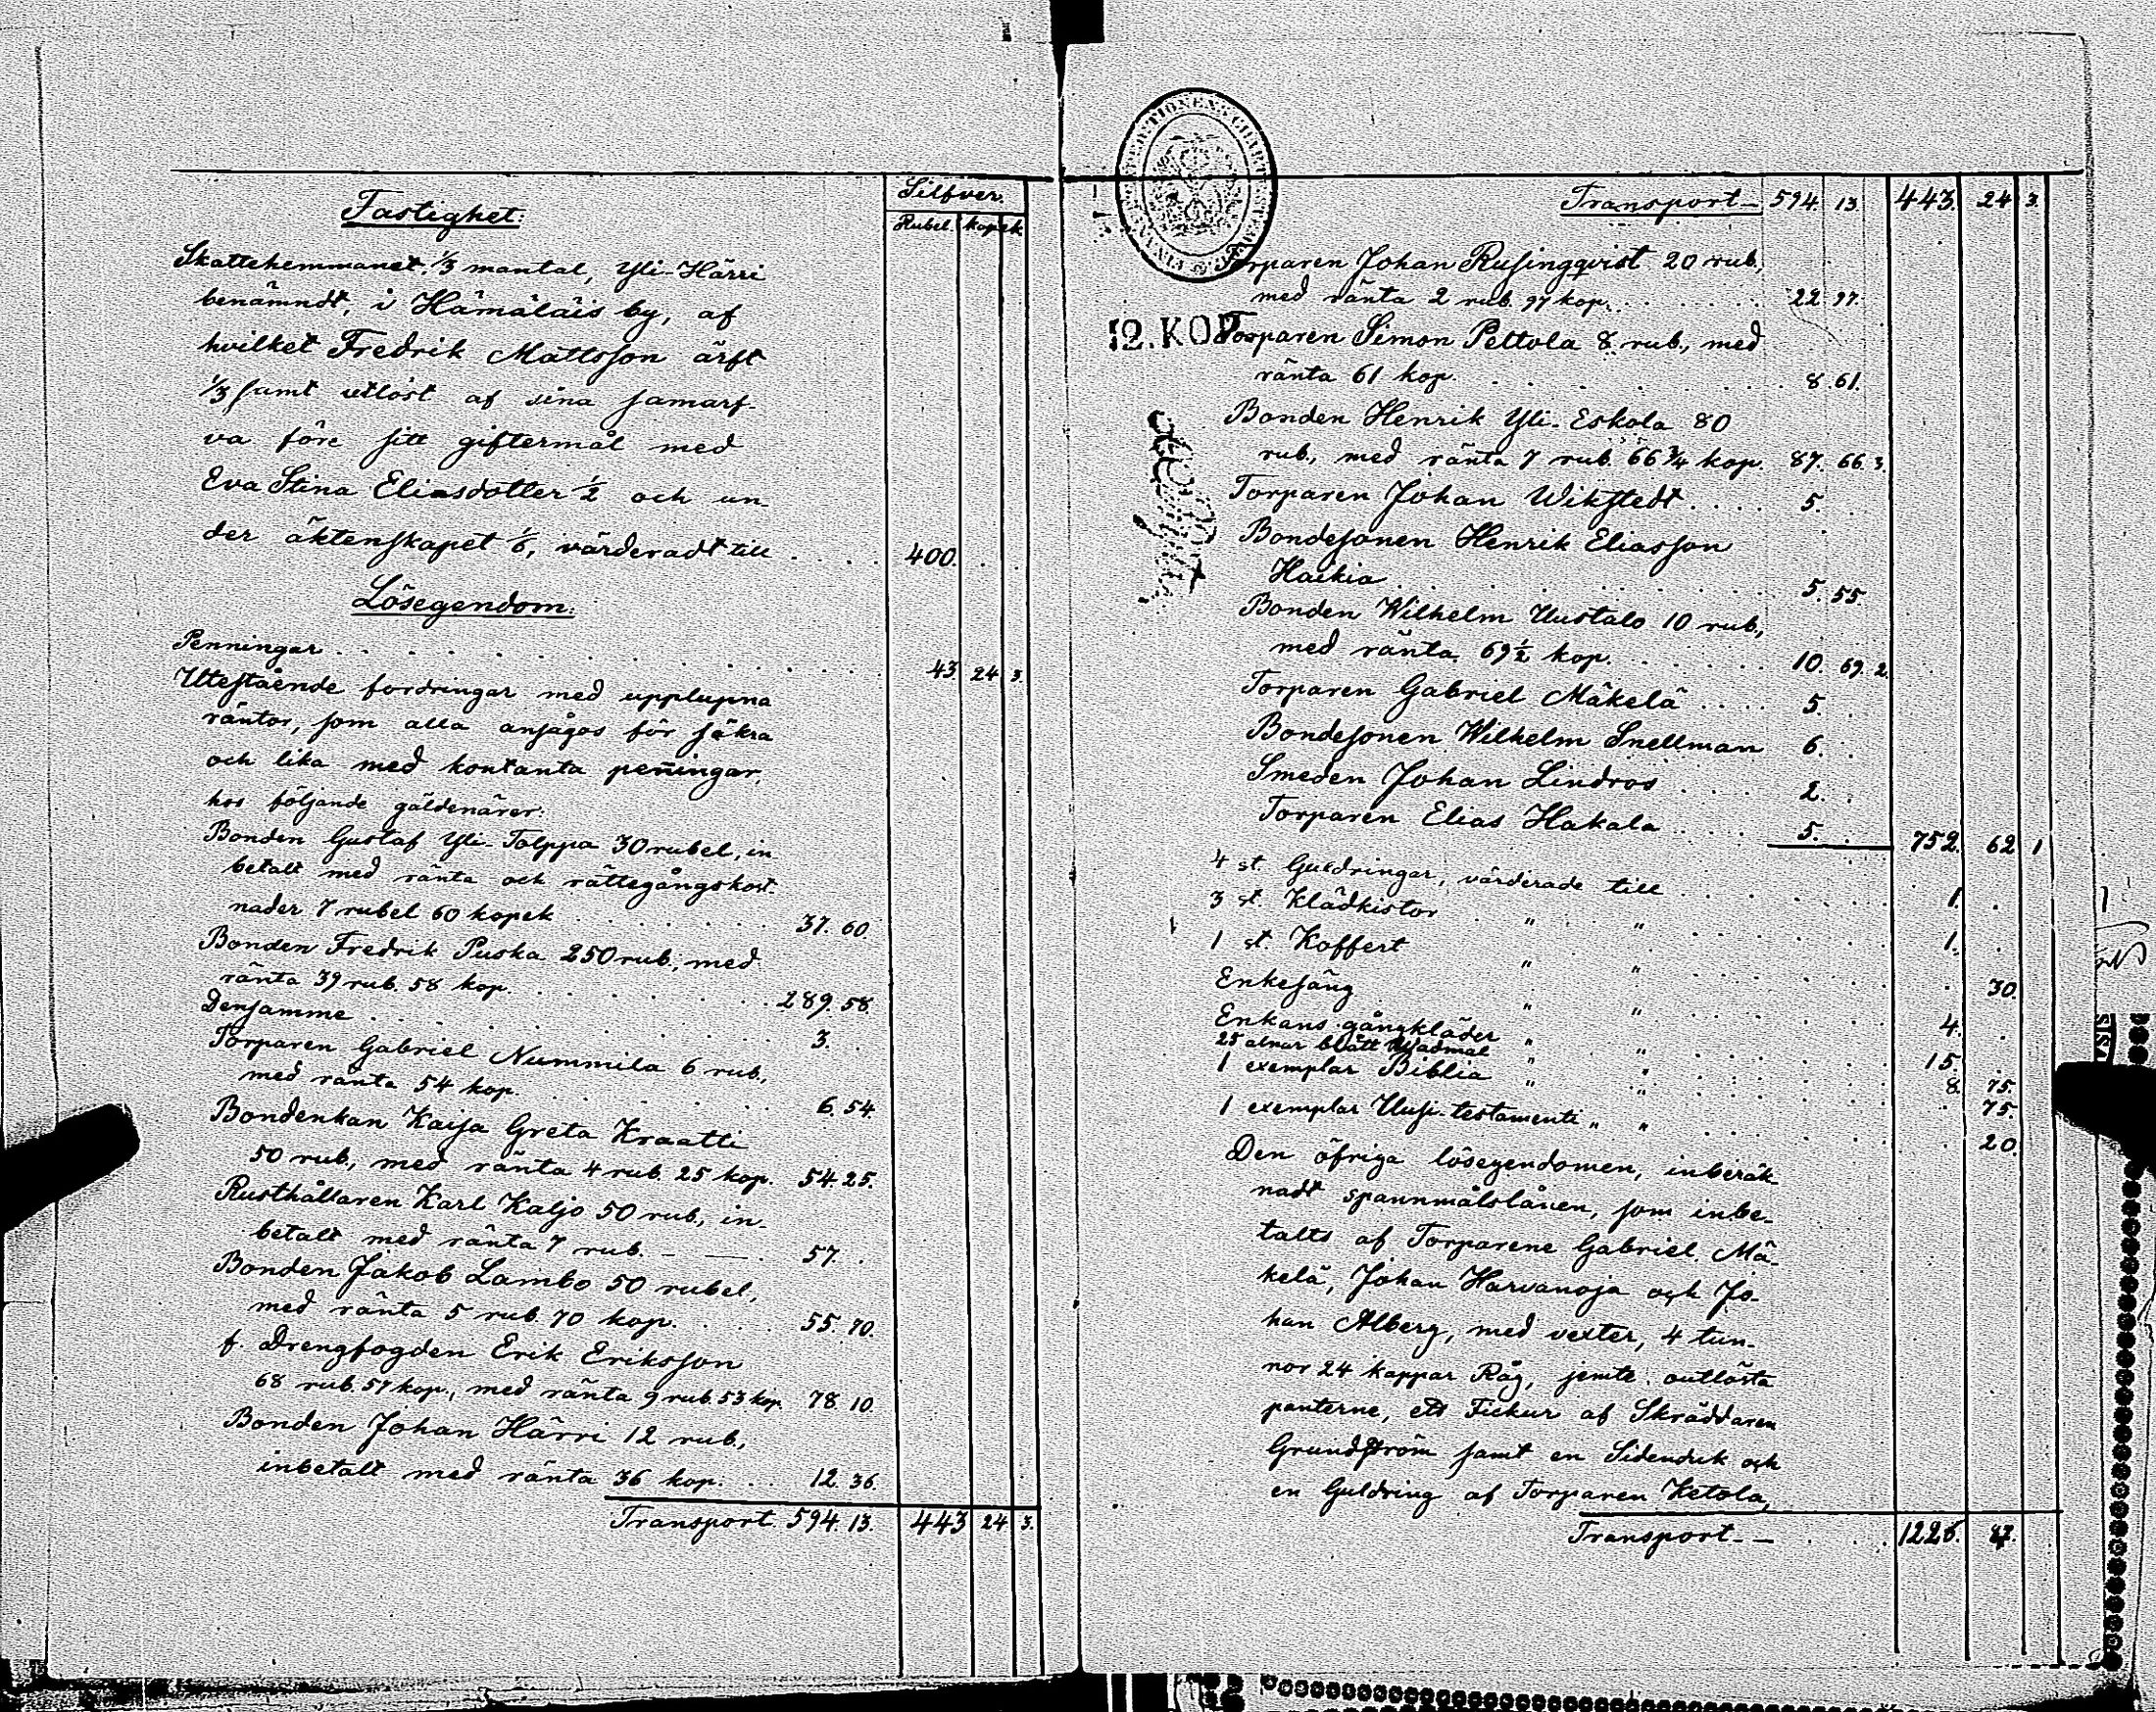 Silfver.
Fastighet:
Rubel. kopek
Skattehemmanet 1/3 mantal, Yli-Härri
benämndt, i Hämäläis by, af
hvilket Fredrik Mattsson ärft
1/3 samt utlöst af sina samarf-
va före sitt giftermål med
Eva Stina Eliasdotter 1/2 och un-
der äktenskapet 1/6, värderadt till . . . 400. . .
Lösegendom:
Penningar . . . 43. 24 3.
Utestående fordringar med upplupna
räntor, som alla ansågos för säkra
och lika med kontanta peñingar,
hos följande gäldenärer:
Bonden Gustaf Yli-Tolppa 30 rubel, in
betalt med ränta och rättegångskost-
nader 7 rubel 60 kopek . . . 37. 60.
Bonden Fredrik Puska 250 rub., med
ränta 39 rub. 58 kop. . . . 289. 58.
Densamme . . . 3. .
Torparen Gabriel Nummila 6 rub.,
med ränta 54 kop. . . . 6. 54
Bondenkan Kaisa Greta Kraatti
50 rub., med ränta 4 rub. 25 kop. 54. 25.
Rusthållaren Karl Kaljo 50 rub., in-
betalt med ränta 7 rub. - — 57. .
Bonden Jakob Lambo 50 rubel,
med ränta 5 rub. 70 kop. . . . 55. 70.
f. Drengfogden Erik Eriksson
68 rub. 57 kop., med ränta 9 rub. 53 kop. 78. 10.
Bonden Johan Härri 12 rub.,
inbetalt med ränta 36 kop. . . 12. 36.
Transport. 594. 13. 443 24 3.
Transport — 594. 13. 443. 24 3.
Torparen Johan Rusingqvist 20 rub.,
med ränta 2 rub. 97 kop. . . . 22. 97.
12. KOP.
Torparen Simon Pettola 8 rub., med
ränta 61 kop. . . . 8. 61.
Bonden Henrik Yli-Eskola 80
rub., med ränta 7 rub. 66 3/4 kop. 87. 66. 3.
Torparen Johan Wikstedt . . . . 5. .
Bondesonen Henrik Eliasson
Haikia . . . 5. 55.
Bonden Wilhelm Uustalo 10 rub.,
med ränta 69 1/2 kop. . . . 10. 69. 2.
Torparen Gabriel Mäkelä . . . . 5. .
Bondesonen Wilhelm Snellman 6. .
Smeden Johan Lindros . . . . 2. .
Torparen Elias Hakala . . . . 5. . 752. 62 1
4 st. Guldringar, värderade till . . . 1. .
3 st. Klädkistor " " . . . 1. .
1 st. Koffert " " . . . 30.
Enkesäng " " . . . 4. .
Enkans gångkläder " " . . . 15.
25 alnar blått Wadmal " " . . . 8. 75
1 exemplar Biblia " " . . . 75.
1 exemplar Uusi-testamenti " " . . . 20.
Den öfriga lösegendomen, inberäk-
nadt spannmålslånen, som inbe-
talts af Torparene Gabriel Mä-
kelä, Johan Harvanoja och Jo-
han Alberg, med vexter, 4 tun-
nor 24 kappar Råg, jemte outlösta
panterne, ett Fickur af Skräddaren
Grundström samt en Sidenduk och
en Guldring af Torparen Ketola,
Transport - — . . . 1226.